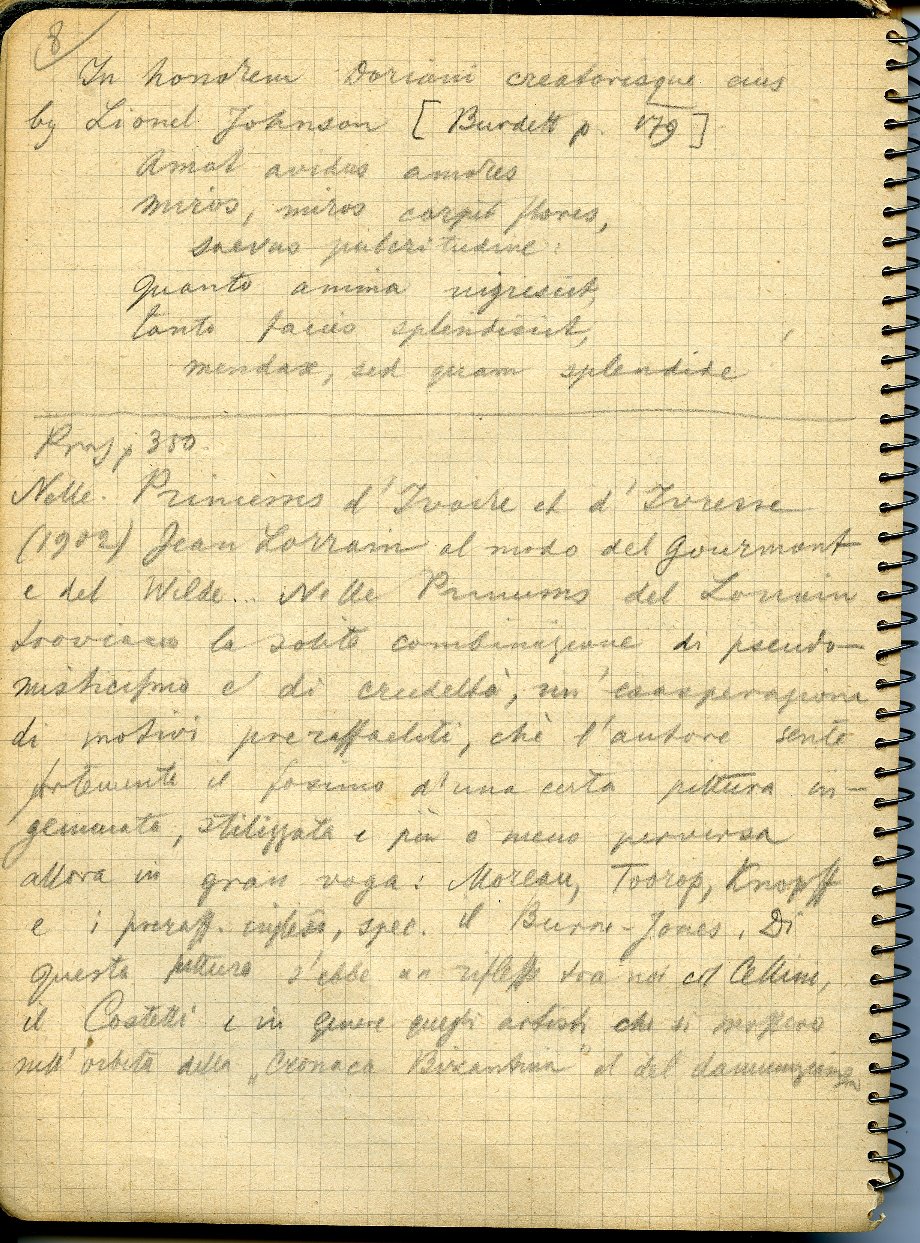 8
In honorem Doriani creatorisque eius
by Lionel Johnson [Burdett p. 179]
Amat avidus amores
miros, miros carpit flores,
saevus pulcritudine:
Quanto anima nigrescit,
tanto facies splendiscit,
mendax, sed quam splendide
Praz p 380.
Nelle Princesses d'Ivoire et d'Ivresse
(1902) Jean Lorrain al modo del Gourmont
e del Wilde... Nelle Princesses del Lorrain
troviamo la solita combinazione di pseudo-
misticismo e di crudeltà, un'esasperazione
di motivi preraffaeliti, chè l'autore sente
fortemente il fascino d'una certa pittura in-
gemmata, stilizzata e più o meno perversa
allora in gran voga: Moreau, Toorop, Knopff
e i preraff. inglesi, spec. il Burne-Jones. Di
questa pittura s'ebbe un riflesso tra noi col Cellini,
il Costetti e in genere quegli artisti che si mossero
nell'orbita della "Cronaca Bizantina" e del